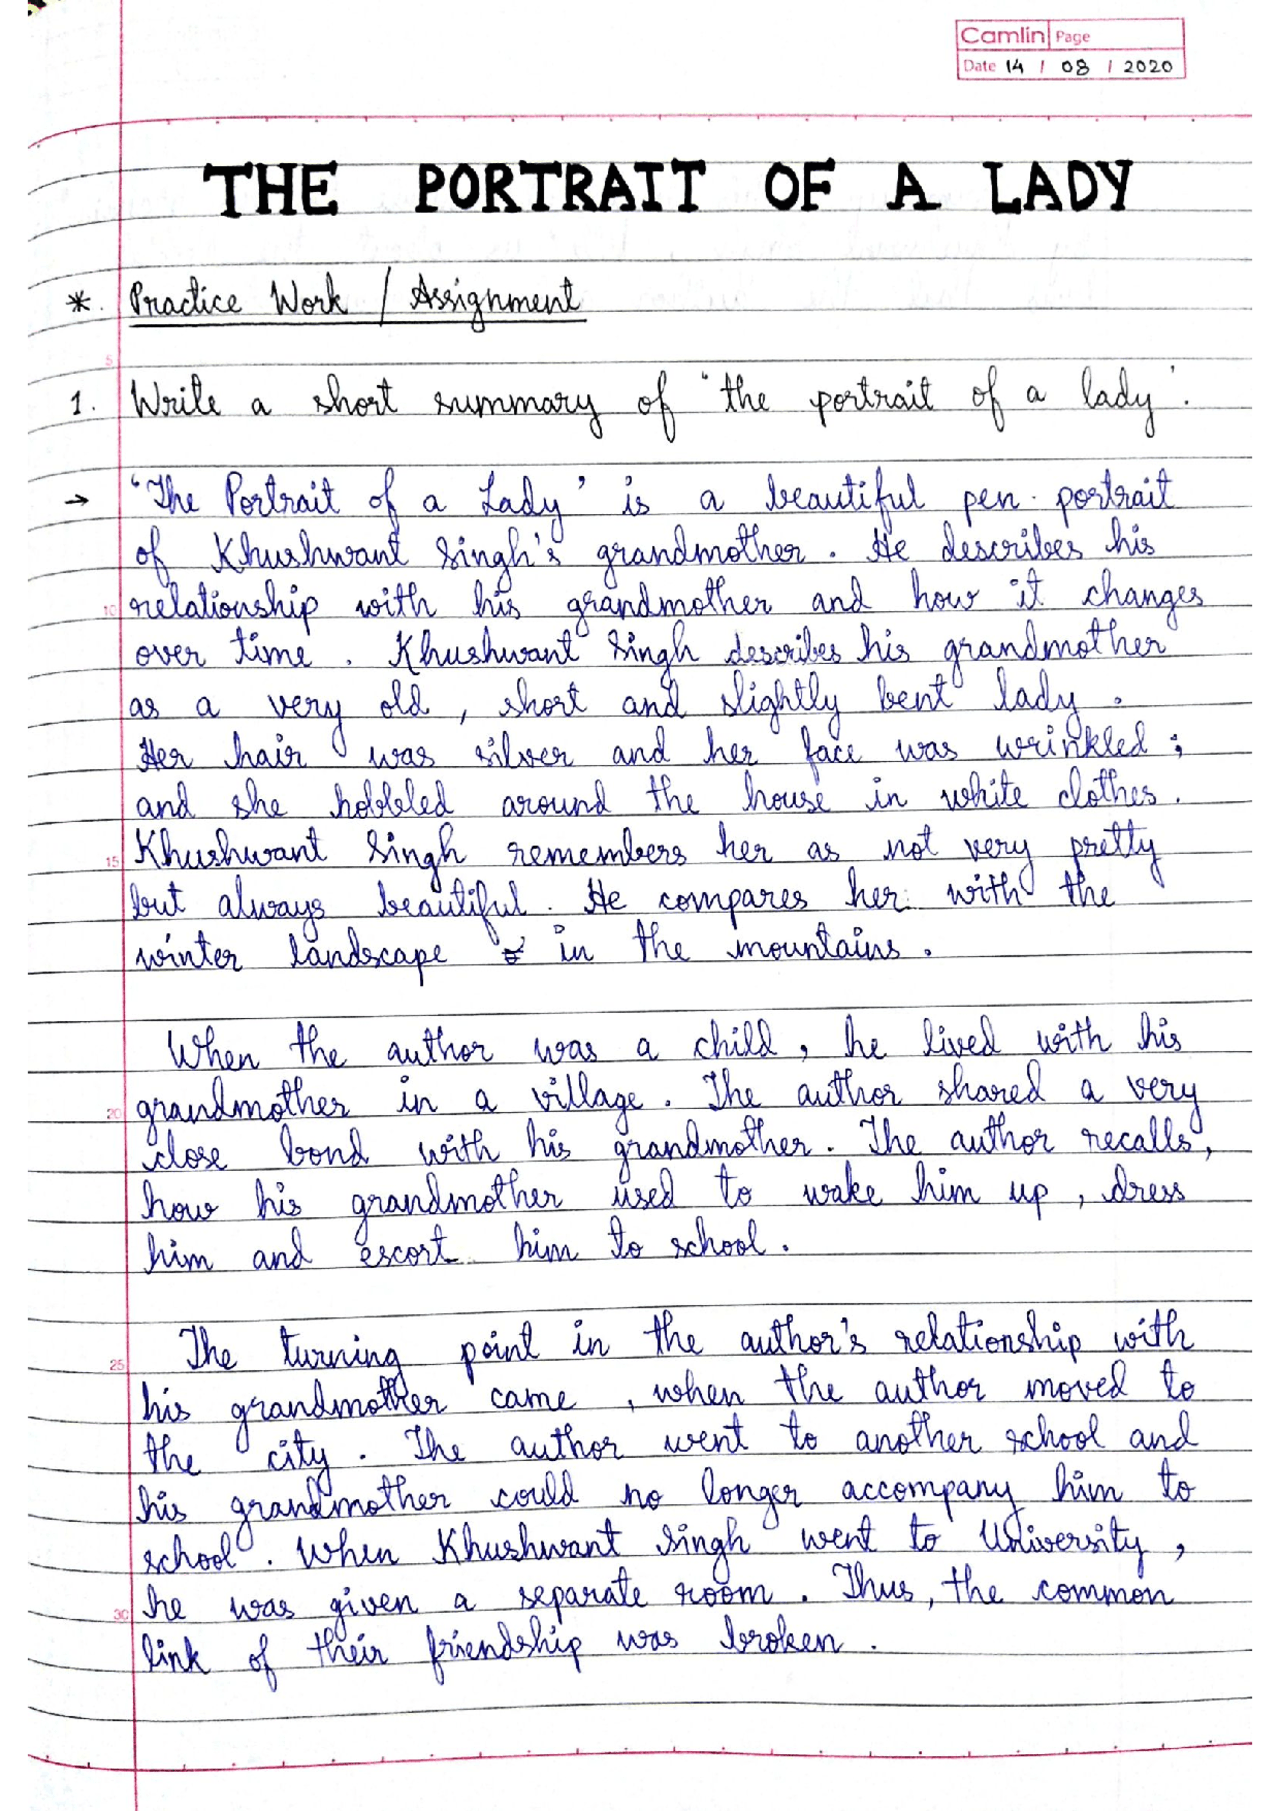 Camlin Page
Date 14 / 08 / 2020
THE PORTRAIT OF A LADY
*. Practice Work / Assignment
5
1. Write a short summary of 'the portrait of a lady'.
→ 'The Portrait of a Lady' is a beautiful pen-portrait
of Khushwant Singh's grandmother. He describes his
10 relationship with his grandmother and how it changes
over time. Khushwant Singh describes his grandmother
as a very old, short and slightly bent lady.
Her hair was silver and her face was wrinkled;
and she hobbled around the house in white clothes.
15 Khushwant Singh remembers her as not very pretty
but always beautiful. He compares her with the
winter landscape in the mountains.
When the author was a child, he lived with his
20 grandmother in a village. The author shared a very
close bond with his grandmother. The author recalls,
how his grandmother used to wake him up, dress
him and escort him to school.
25 The turning point in the author's relationship with
his grandmother came, when the author moved to
the city. The author went to another school and
his grandmother could no longer accompany him to
school. When Khushwant Singh went to University,
30 he was given a separate room. Thus, the common
link of their friendship was broken.